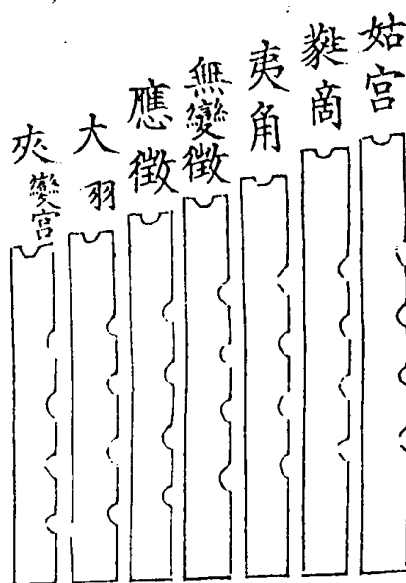 姑宮
蕤啇
夷角
無變徵
應徵
大羽
夾變宫